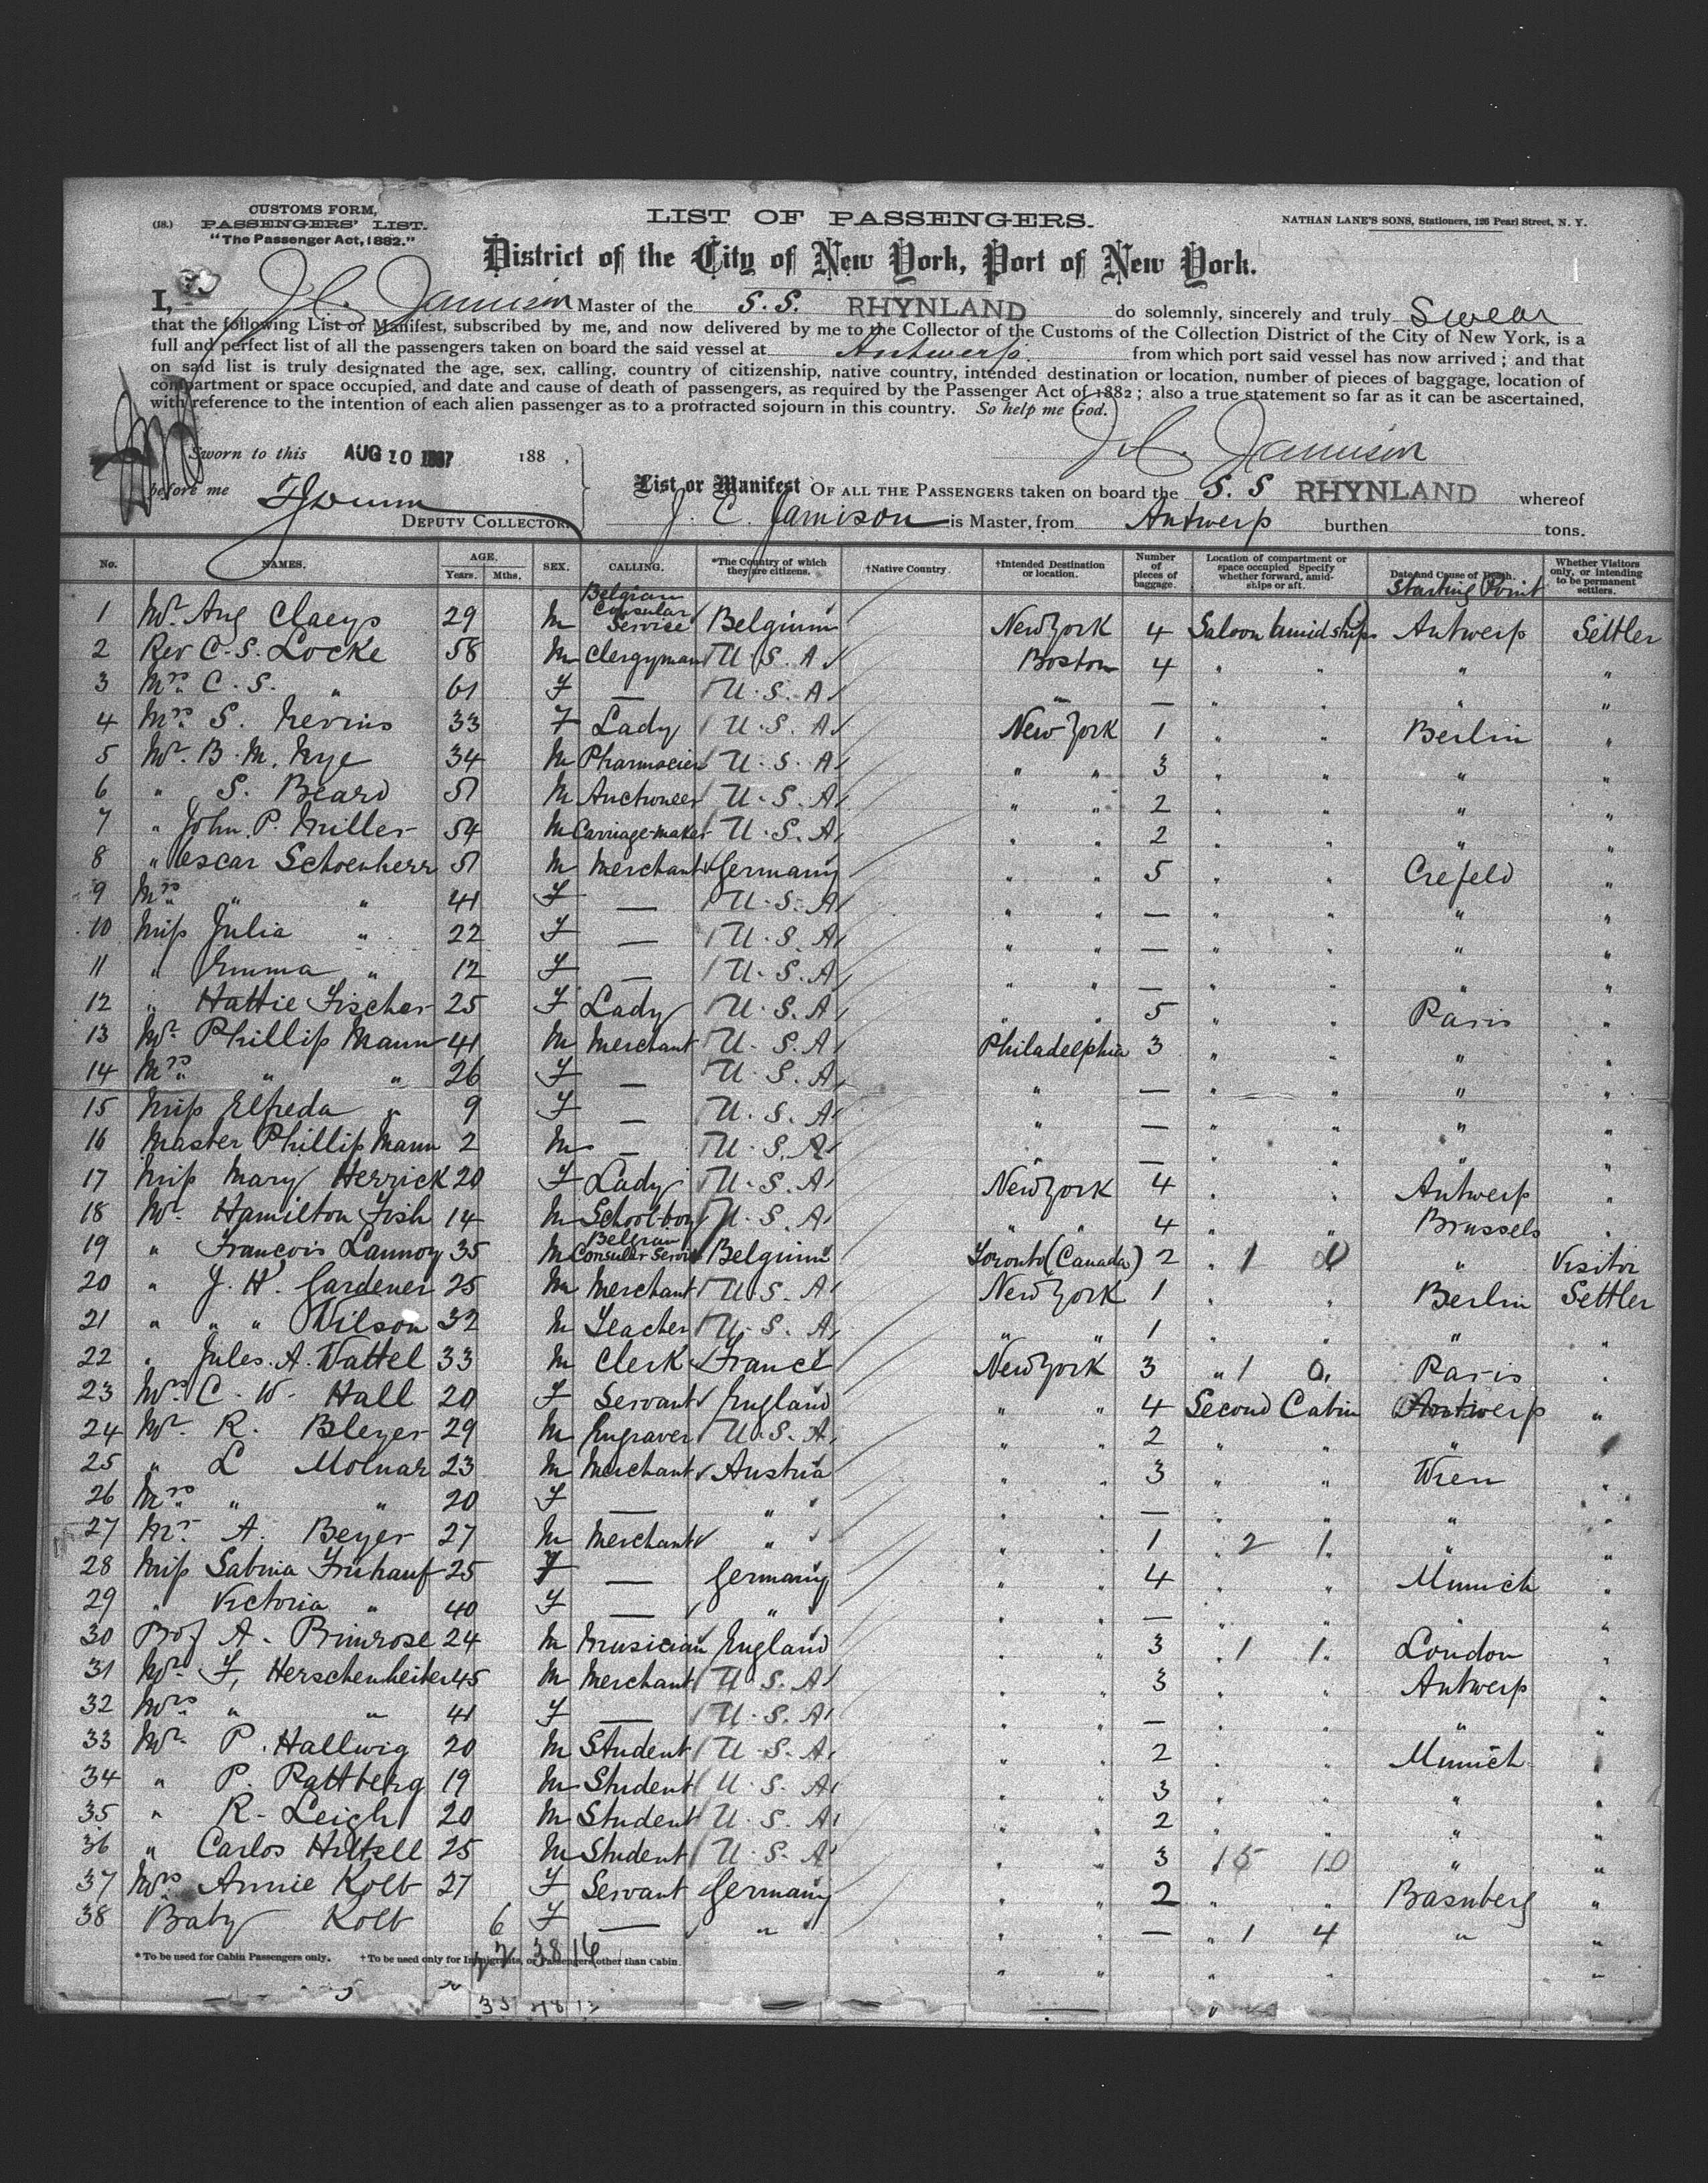 (18.)
CUSTOMS FORM,
PASSENGERS' LIST.
"The Passenger Act, 1882."
LIST OF PASSENGERS.
NATHAN LANE'S SONS, Stationers, 126 Pearl Street, N. Y.
District of the City of New York, Port of New York.
I, J. C. Jamison Master of the S. S. RHYNLAND do solemnly, sincerely and truly Swear
that the following List or Manifest, subscribed by me, and now delivered by me to the Collector of the Customs of the Collection District of the City of New York, is a
full and perfect list of all the passengers taken on board the said vessel at Antwerp. from which port said vessel has now arrived; and that
on said list is truly designated the age, sex, calling, country of citizenship, native country, intended destination or location, number of pieces of baggage, location of
compartment or space occupied, and date and cause of death of passengers, as required by the Passenger Act of 1882; also a true statement so far as it can be ascertained,
with reference to the intention of each alien passenger as to a protracted sojourn in this country. So help me God.
J. C. Jamison
Sworn to this AUG 10 1887 188 .
before me
DEPUTY COLLECTOR.
List or Manifest OF ALL THE PASSENGERS taken on board the S. S RHYNLAND whereof
J. C. Jamison is Master, from Antwerp burthen tons.
No. NAMES. AGE. Years. Mths. SEX. CALLING. *The Country of which they are citizens. †Native Country. †Intended Destination or location. Number of pieces of baggage. Location of compartment or space occupied Specify whether forward, amidships or aft Date and Cause of Death. Starting Point Whether Visitors only, or intending to be permanent settlers.
1 Mr. Aug Claeys 29 M Belgian Consular Service Belgium New York 4 Saloon (amidships) Antwerp Settler
2 Rev C. S. Locke 58 M Clergyman U. S. A Boston 4 " " " "
3 Mrs. C. S. " 61 F — U. S. A " — " " " "
4 Mrs. S. Nevins 33 F Lady U. S. A New York 1 " " Berlin "
5 Mr. B. M. Nye 34 M Pharmacien U. S. A " " 3 " " " "
6 " S. Beard 51 M Auctioneer U. S. A " " 2 " " " "
7 " John. P. Miller 54 M Carriage-maker U. S. A " " 2 " " " "
8 " Oscar Schoenherr 51 M Merchant Germany " " 5 " " Crefeld "
9 Mrs. " " 41 F — U. S. A " " — " " " "
10 Miss Julia " 22 F — U. S. A " " — " " " "
11 " Emma " 12 F — U. S. A " " — " " " "
12 " Hattie Fischer 25 F Lady U. S. A " " 5 " " Paris "
13 Mr. Phillip Mann 41 M Merchant U. S. A Philadelphia 3 " " " "
14 Mrs. " " 26 F — U. S. A " — " " " "
15 Miss Elfreda " 9 F — U. S. A " — " " " "
16 Master Phillip Mann 2 M — U. S. A " — " " " "
17 Miss Mary Herrick 20 F Lady U. S. A New York 4 " " Antwerp "
18 Mr. Hamilton Fish 14 M School-boy U. S. A " " 4 " " Brussels "
19 " Francois Lannoy 35 M Belgian Consular Service Belgium Toronto (Canada) 2 " 1 0 " Visitor
20 " J. H. Gardener 25 M Merchant U. S. A New York 1 " " Berlin Settler
21 " " " Wilson 32 M Teacher U. S. A " " 1 " " " "
22 " Jules. A. Wattel 33 M Clerk France New York 3 " 1 0 Paris "
23 Mrs. C. W. Hall 20 F Servant England " " 4 Second Cabin Antwerp "
24 Mr. R. Bleyer 29 M Engraver U. S. A " " 2 " " "
25 " L Molnar 23 M Merchant Austria " " 3 " " Wien "
26 Mrs. " " 20 F — " " " — " " " "
27 Mr. A. Beyer 27 M Merchant " " " 1 " 2 1 " "
28 Miss Sabina Fruhauf 25 F — Germany " " 4 " " Munich "
29 " Victoria " 40 F — " " " — " " " "
30 Prof A. Primrose 24 M Musician England " " 3 " 1 1 London "
31 Mr. F. Herschenheiter 45 M Merchant U. S. A " " 3 " " Antwerp "
32 Mrs. " " 41 F — U. S. A " " — " " " "
33 Mr. P. Hallwig 20 M Student U. S. A " " 2 " " Munich "
34 " P. Rattberg 19 M Student U. S. A " " 3 " " " "
35 " R. Leigh 20 M Student U. S. A " " 2 " " " "
36 " Carlos Hiltell 25 M Student U. S. A " " 3 15 10 " "
37 Mrs. Annie Kolb 27 F Servant Germany " " 2 " " Basnberg "
38 Baby Kolb 6 F — " " " — " 1 4 " "
* To be used for Cabin Passengers only. † To be used only for Immigrants, or Passengers other than Cabin.